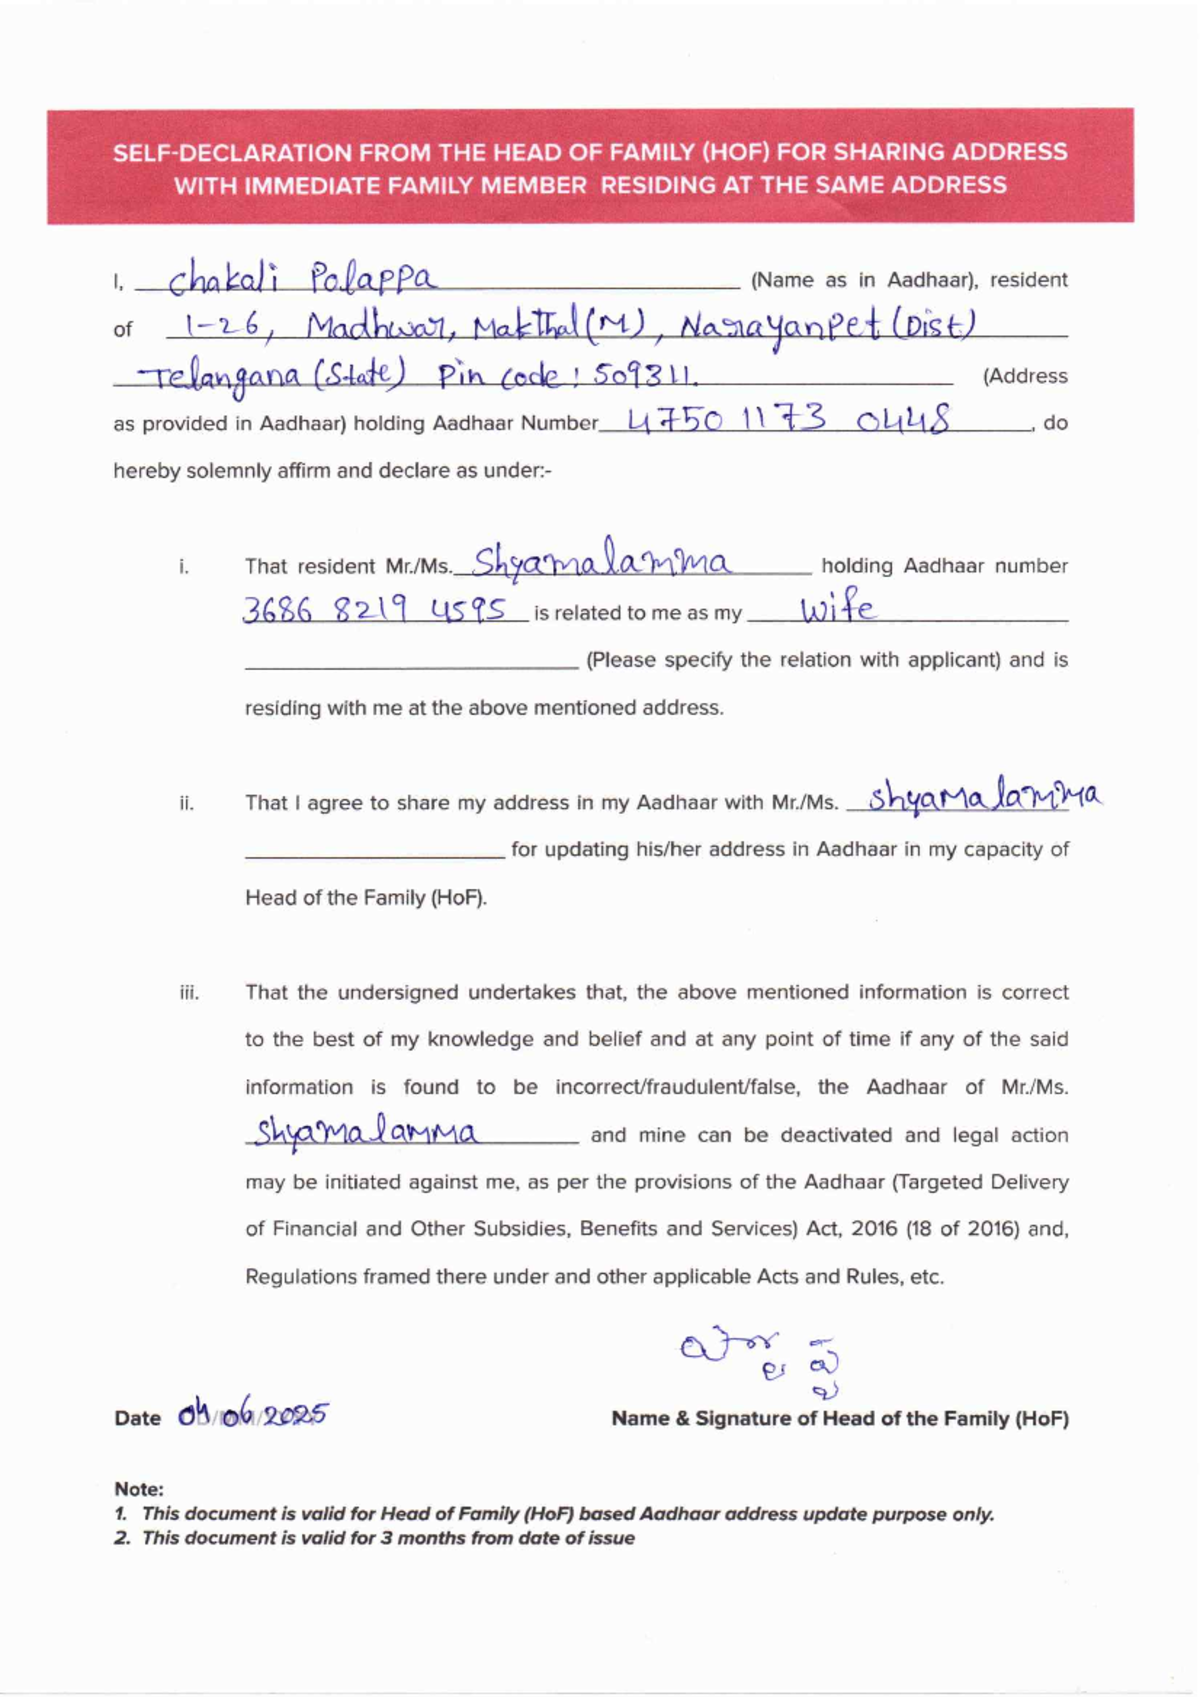 SELF-DECLARATION FROM THE HEAD OF FAMILY (HOF) FOR SHARING ADDRESS
WITH IMMEDIATE FAMILY MEMBER RESIDING AT THE SAME ADDRESS
I, Chakali Palappa (Name as in Aadhaar), resident
of 1-26, Madhwar, Makthal(M), Narayanpet (Dist)
Telangana (State) Pin code: 509311. (Address
as provided in Aadhaar) holding Aadhaar Number 4750 1173 0448, do
hereby solemnly affirm and declare as under:-
i. That resident Mr./Ms. Shyamalamma holding Aadhaar number
3686 8219 4595 is related to me as my wife
(Please specify the relation with applicant) and is
residing with me at the above mentioned address.
ii. That I agree to share my address in my Aadhaar with Mr./Ms. Shyamalamma
for updating his/her address in Aadhaar in my capacity of
Head of the Family (HoF).
iii. That the undersigned undertakes that, the above mentioned information is correct
to the best of my knowledge and belief and at any point of time if any of the said
information is found to be incorrect/fraudulent/false, the Aadhaar of Mr./Ms.
Shyamalamma and mine can be deactivated and legal action
may be initiated against me, as per the provisions of the Aadhaar (Targeted Delivery
of Financial and Other Subsidies, Benefits and Services) Act, 2016 (18 of 2016) and,
Regulations framed there under and other applicable Acts and Rules, etc.
Date 04/06/2025 Name & Signature of Head of the Family (HoF)
Note:
1. This document is valid for Head of Family (HoF) based Aadhaar address update purpose only.
2. This document is valid for 3 months from date of issue